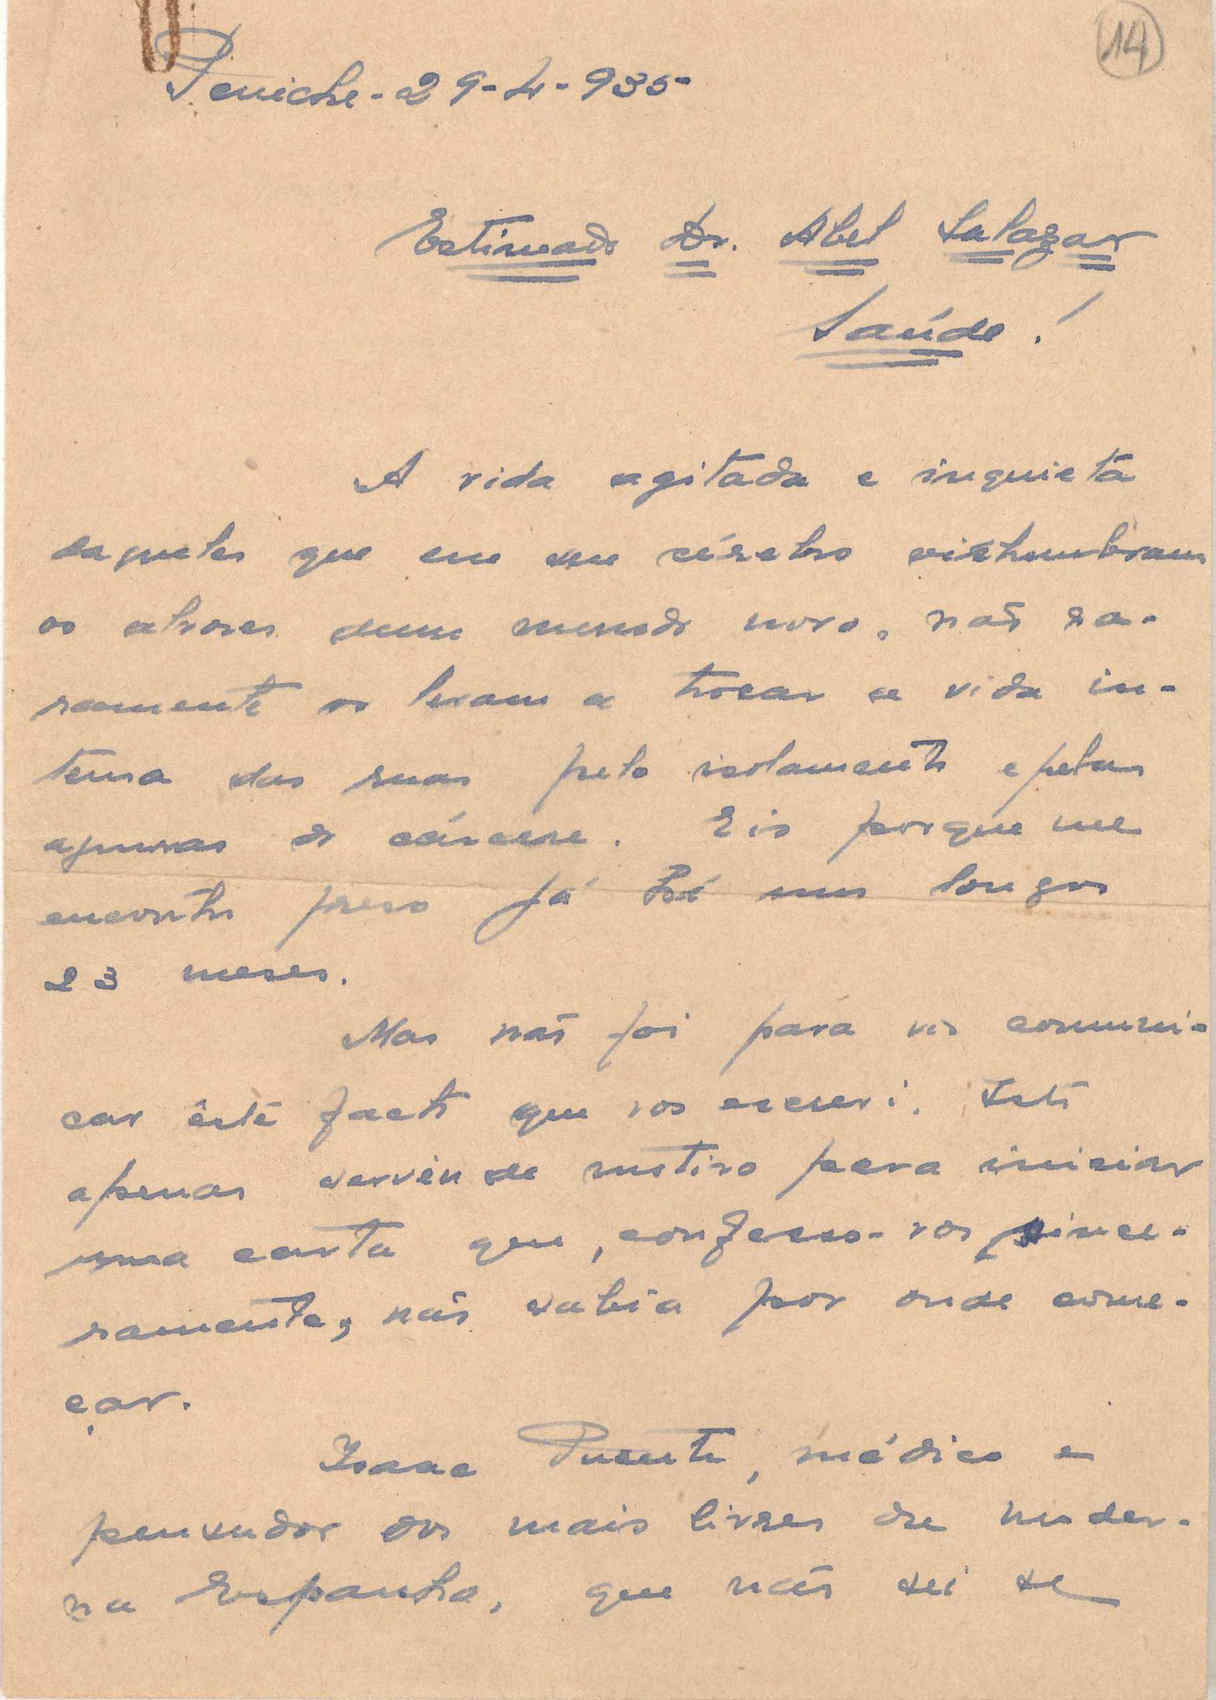 14
Peniche - 29-4-935-
Estimado Dr. Abel Salazar
Saúde!
A vida agitada e inquieta
daqueles que em seu cérebro vislumbram
os alvores dum mundo novo, não ra-
ramente os levam a trocar a vida in-
tensa das ruas pelo isolamento e pelas
agruras do cárcere. Eis porque me
encontro preso já há uns longos
23 meses.
Mas não foi para vos comuni-
car êste facto que vos escrevi. Isto
apenas serviu de motivo para iniciar
uma carta que, confesso-vos since-
ramente, não sabia por onde come-
çar.
Isaac Puente, médico e
pensador dos mais livres da moder-
na Espanha, que não sei se